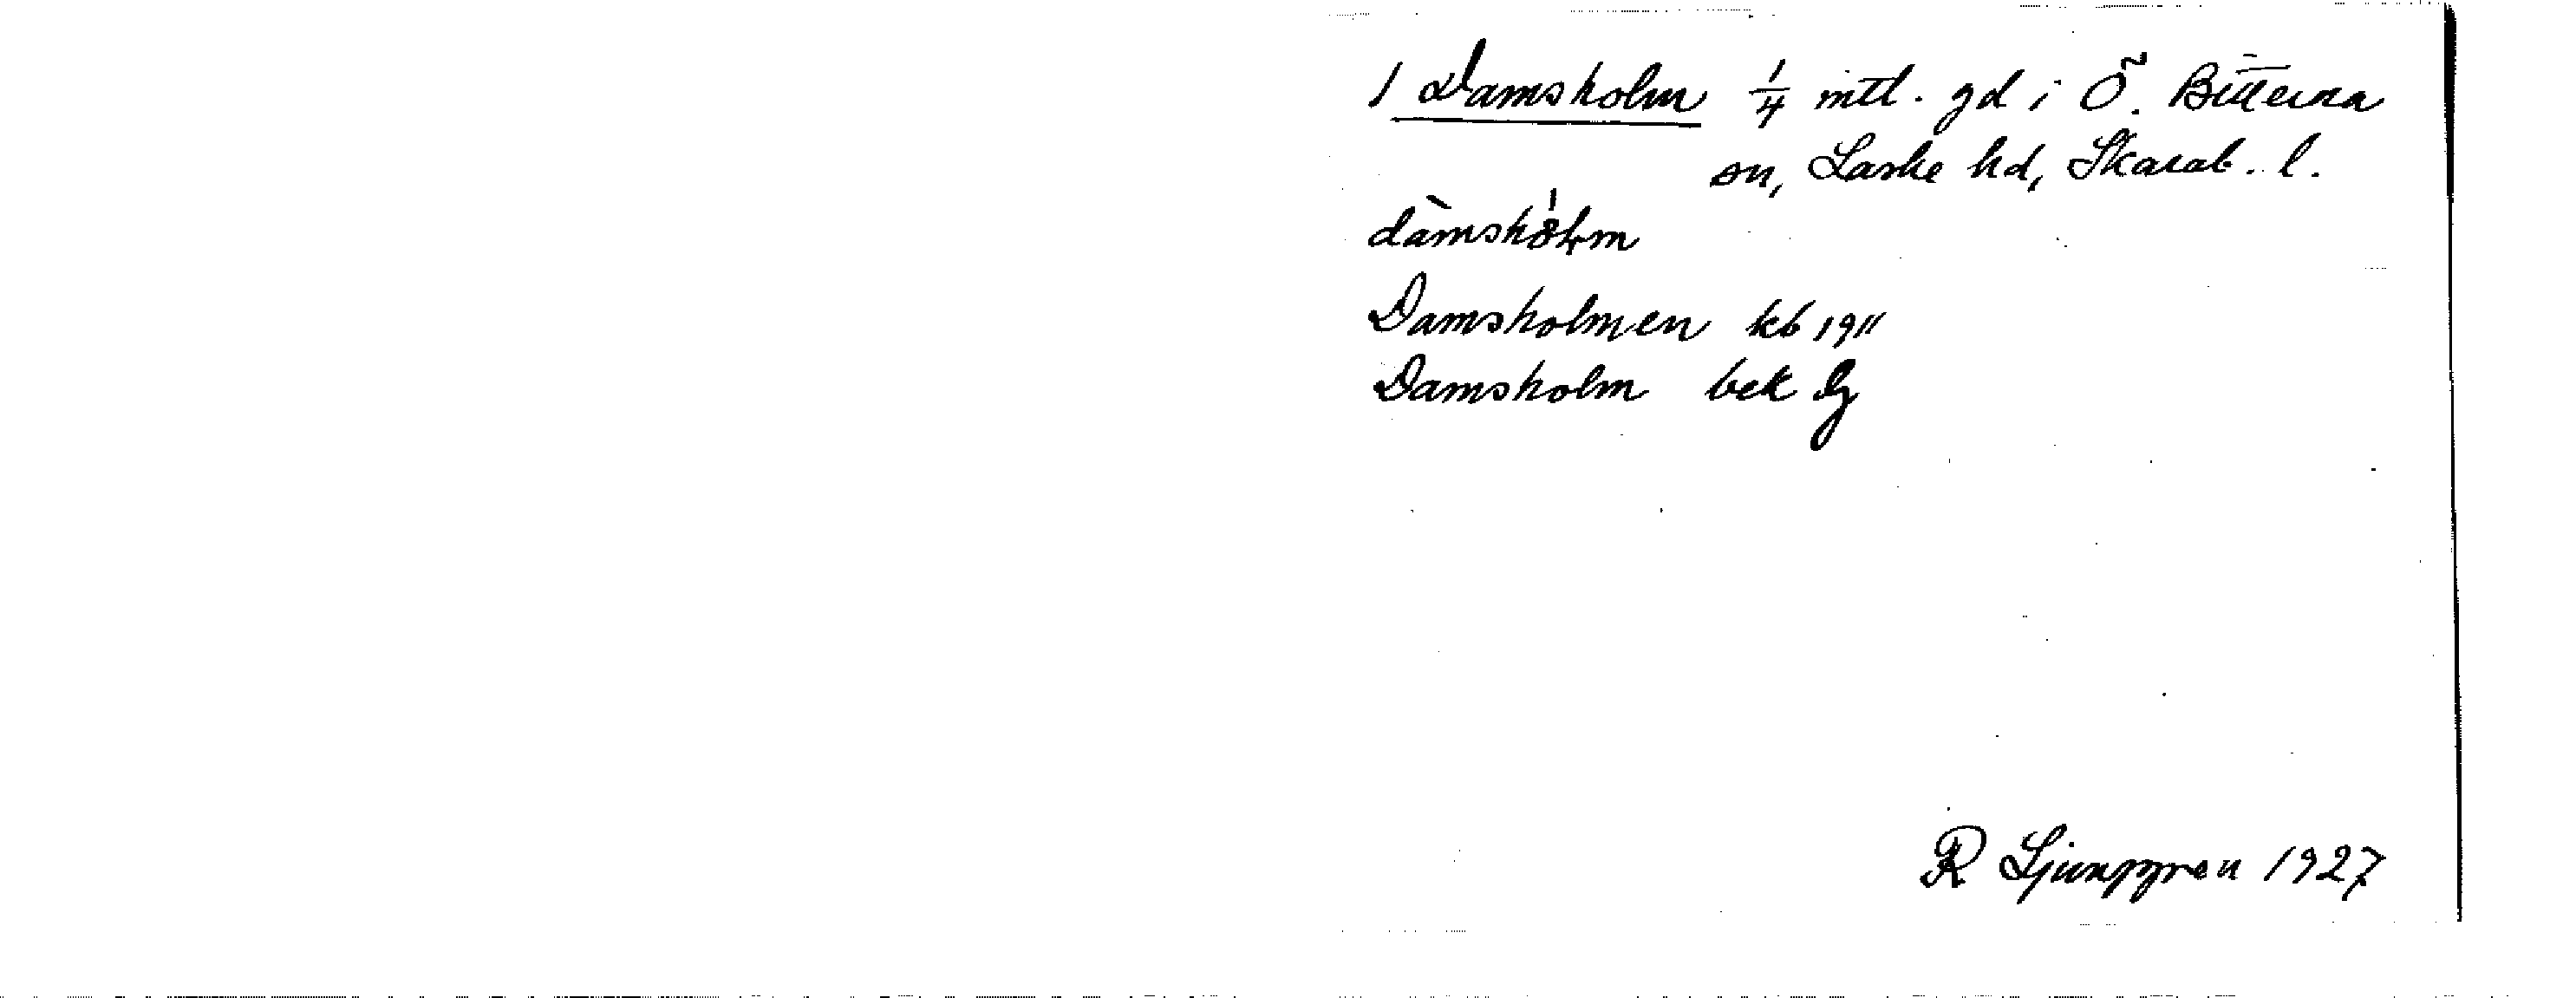 1 Damsholm 1/4 mtl. gd i Ö. Bitterna
sn, Laske hd, Skarab. l.
Damsholmen kb 1911
Damsholm bek
R Ljunggren 1927